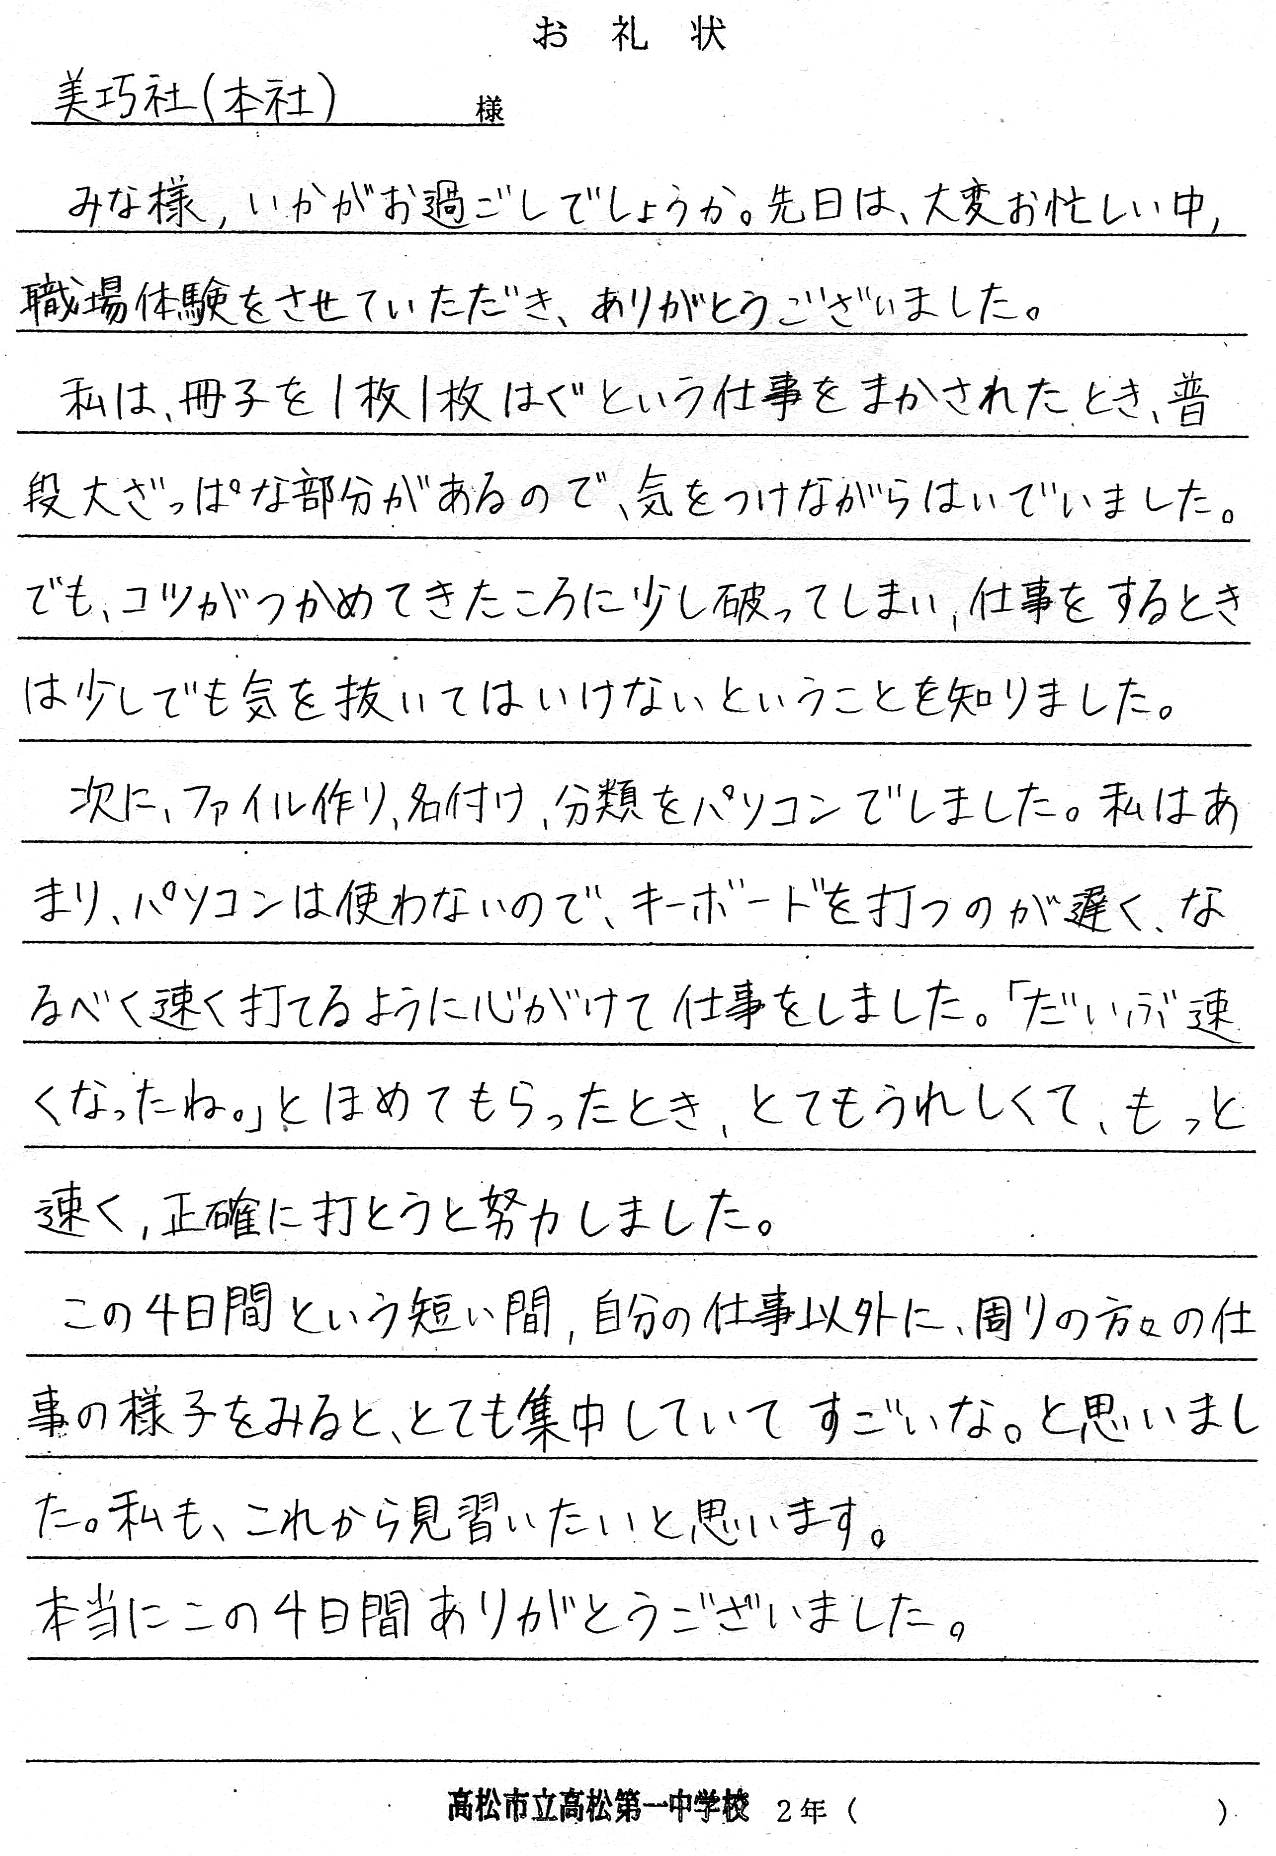 お礼状
美巧社(本社) 様
みな様,いかがお過ごしでしょうか。先日は、大変お忙しい中,
職場体験をさせていただき、ありがとうございました。
私は、冊子を1枚1枚はぐという仕事をまかされたとき、普
段大ざっぱな部分があるので、気をつけながらはいでいました。
でも、コツがつかめてきたころに少し破ってしまい,仕事をするとき
は少しでも気を抜いてはいけないということを知りました。
次に、ファイル作り、名付け、分類をパソコンでしました。私はあ
まり、パソコンは使わないので、キーボードを打つのが遅く、な
るべく速く打てるように心がけて仕事をしました。「だいぶ速
くなったね。」とほめてもらったとき、とてもうれしくて、もっと
速く,正確に打とうと努力しました。
この4日間という短い間,自分の仕事以外に、周りの方々の仕
事の様子をみると、とても集中していてすごいな。と思いまし
た。私も、これから見習いたいと思います。
本当にこの4日間ありがとうございました。
高松市立高松第一中学校 2年( )